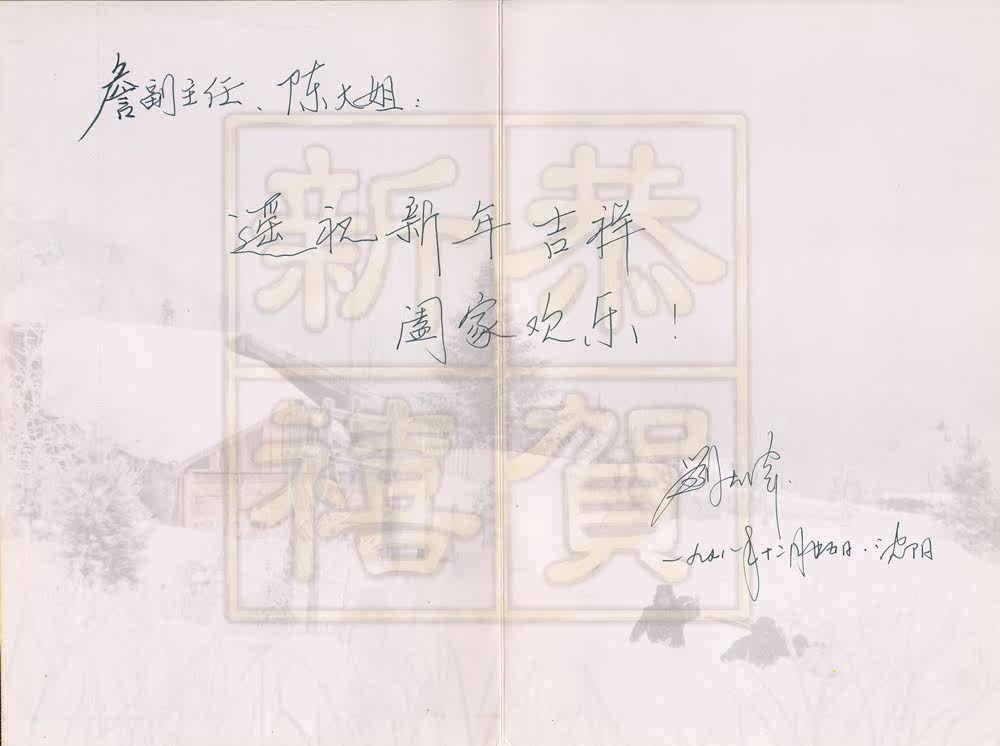 詹副主任、陈大姐:
遥祝新年吉祥
阖家欢乐!
恭賀
新禧
一九九八年十二月廿五日.沈阳